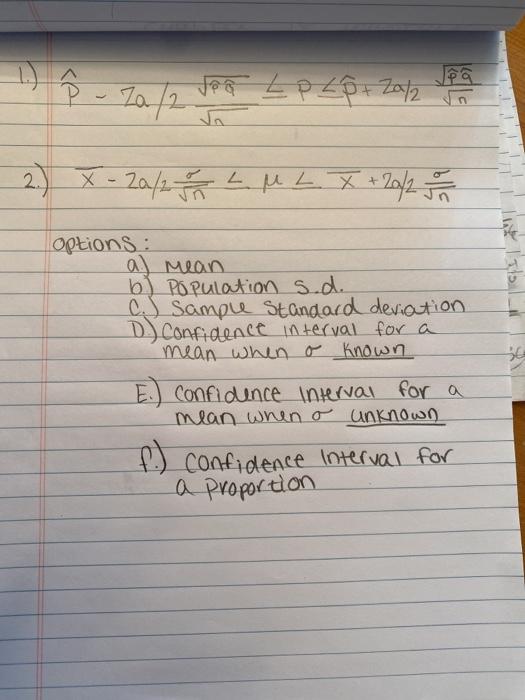 1.) p̂ - Za/2 √p̂q̂/√n ∠ p ∠ p̂ + Za/2 √p̂q̂/√n
2.) x̄ - Za/2 σ/√n ∠ μ ∠ x̄ + Za/2 σ/√n
options:
a) Mean
b) Population s.d.
C.) Sample Standard deviation
D) Confidence interval for a
mean when σ known
E.) Confidence Interval for a
mean when σ unknown
f.) Confidence Interval for
a proportion